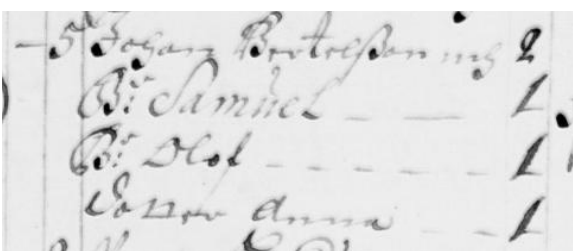 – 5 Johan Bertelsson mh 2
Br: Samuel – – 1
Br: Olof – – – – – 1
Dotter Anna – – 1